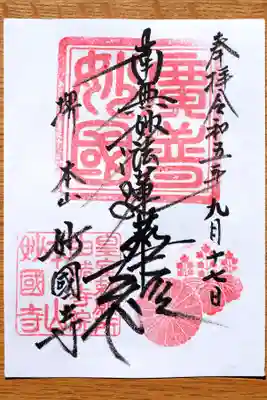 奉拝令和五年九月十七日
南無妙法蓮華経
堺 本山 妙國寺
廣普
妙國
本山
妙國寺